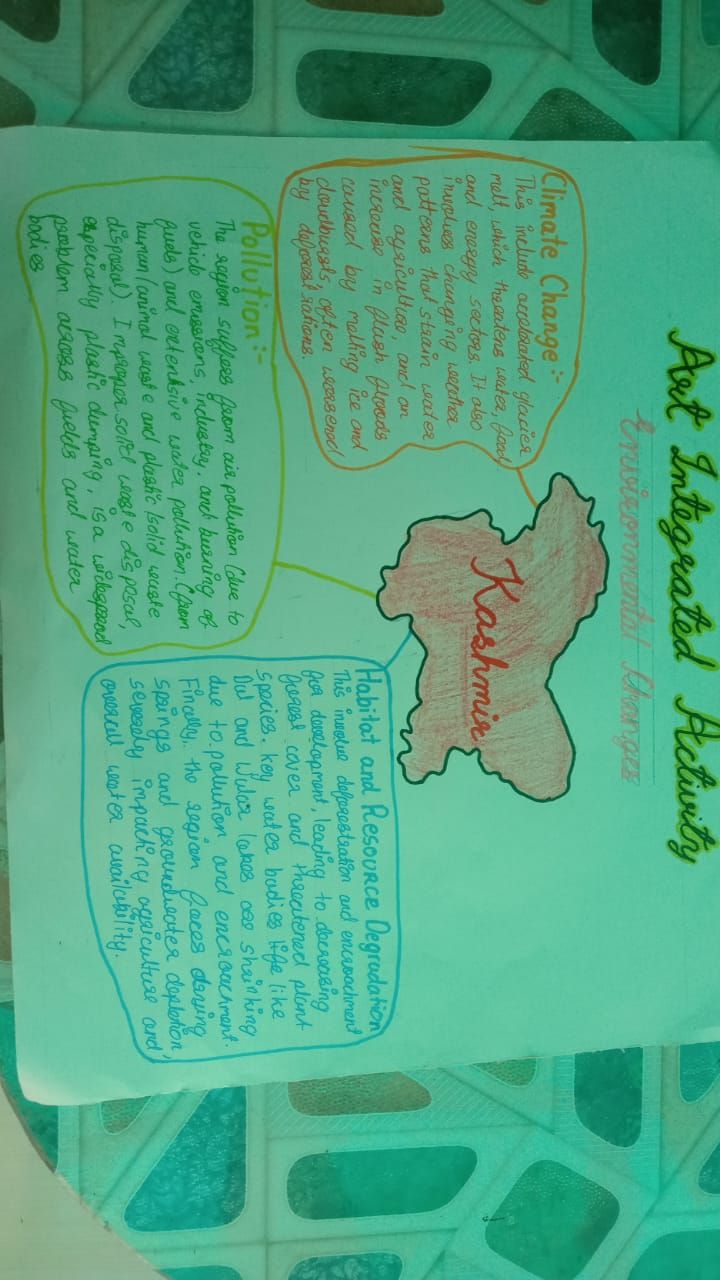 Art Integrated Activity
Environmental Changes
Climate Change :-
This include accelerated glacier
melt, which threatens water, food,
and energy sectors. It also
involves changing weather
patterns that strain water
and agriculture, and an
increase in flash floods
caused by melting ice and
cloudbursts, often worsened
by deforestations.
Kashmir
Pollution :-
The region suffers from air pollution (due to
vehicle emissions, industry, and burning of
fuels) and extensive water pollution. (from
human/animal waste and plastic/solid waste
disposal). Improper solid waste disposal,
especially plastic dumping, is a widespread
problem across fields and water
bodies
Habitat and Resource Degradation
This involve deforestration and encroachment
for development, leading to decreasing
forest cover and threatened plant
species. Key water bodies life like
Dal and Wular lakes are shrinking
due to pollution and encroachment.
Finally, the region faces drying
springs and groundwater depletion,
severely impacting agriculture and
overall water availability.